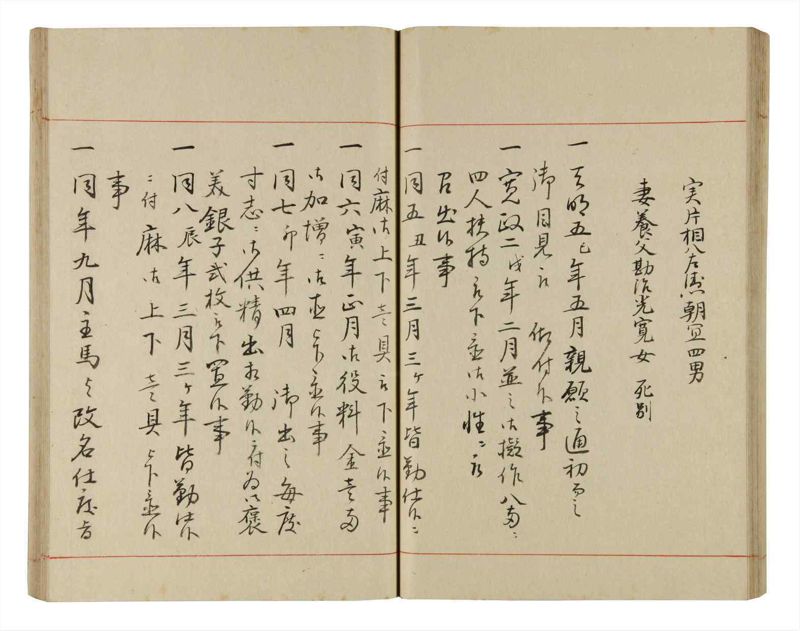 実片桐八左衛門朝宜四男
妻養父勘治光寛女　死別
一　天明五巳年五月親願之通初而之
御目見被　仰付候事
一　寛政二戌年二月並之御擬作八両ニ
四人扶持被下置御小性ニ被
召出候事
一　同五丑年三月三ヶ年皆勤仕候ニ
付麻御上下壱具被下置候事
一　同六寅年正月御役料金壱両
御加増ニ御直シ被下置候事
一　同七卯年四月　御出之毎度
寸志ニ御供精出相勤候ニ付為御褒
美銀子弐枚被下置候事
一　同八辰年三月三ヶ年皆勤仕候
ニ付麻御上下壱具被下置候
事
一　同年九月主馬与改名仕度旨